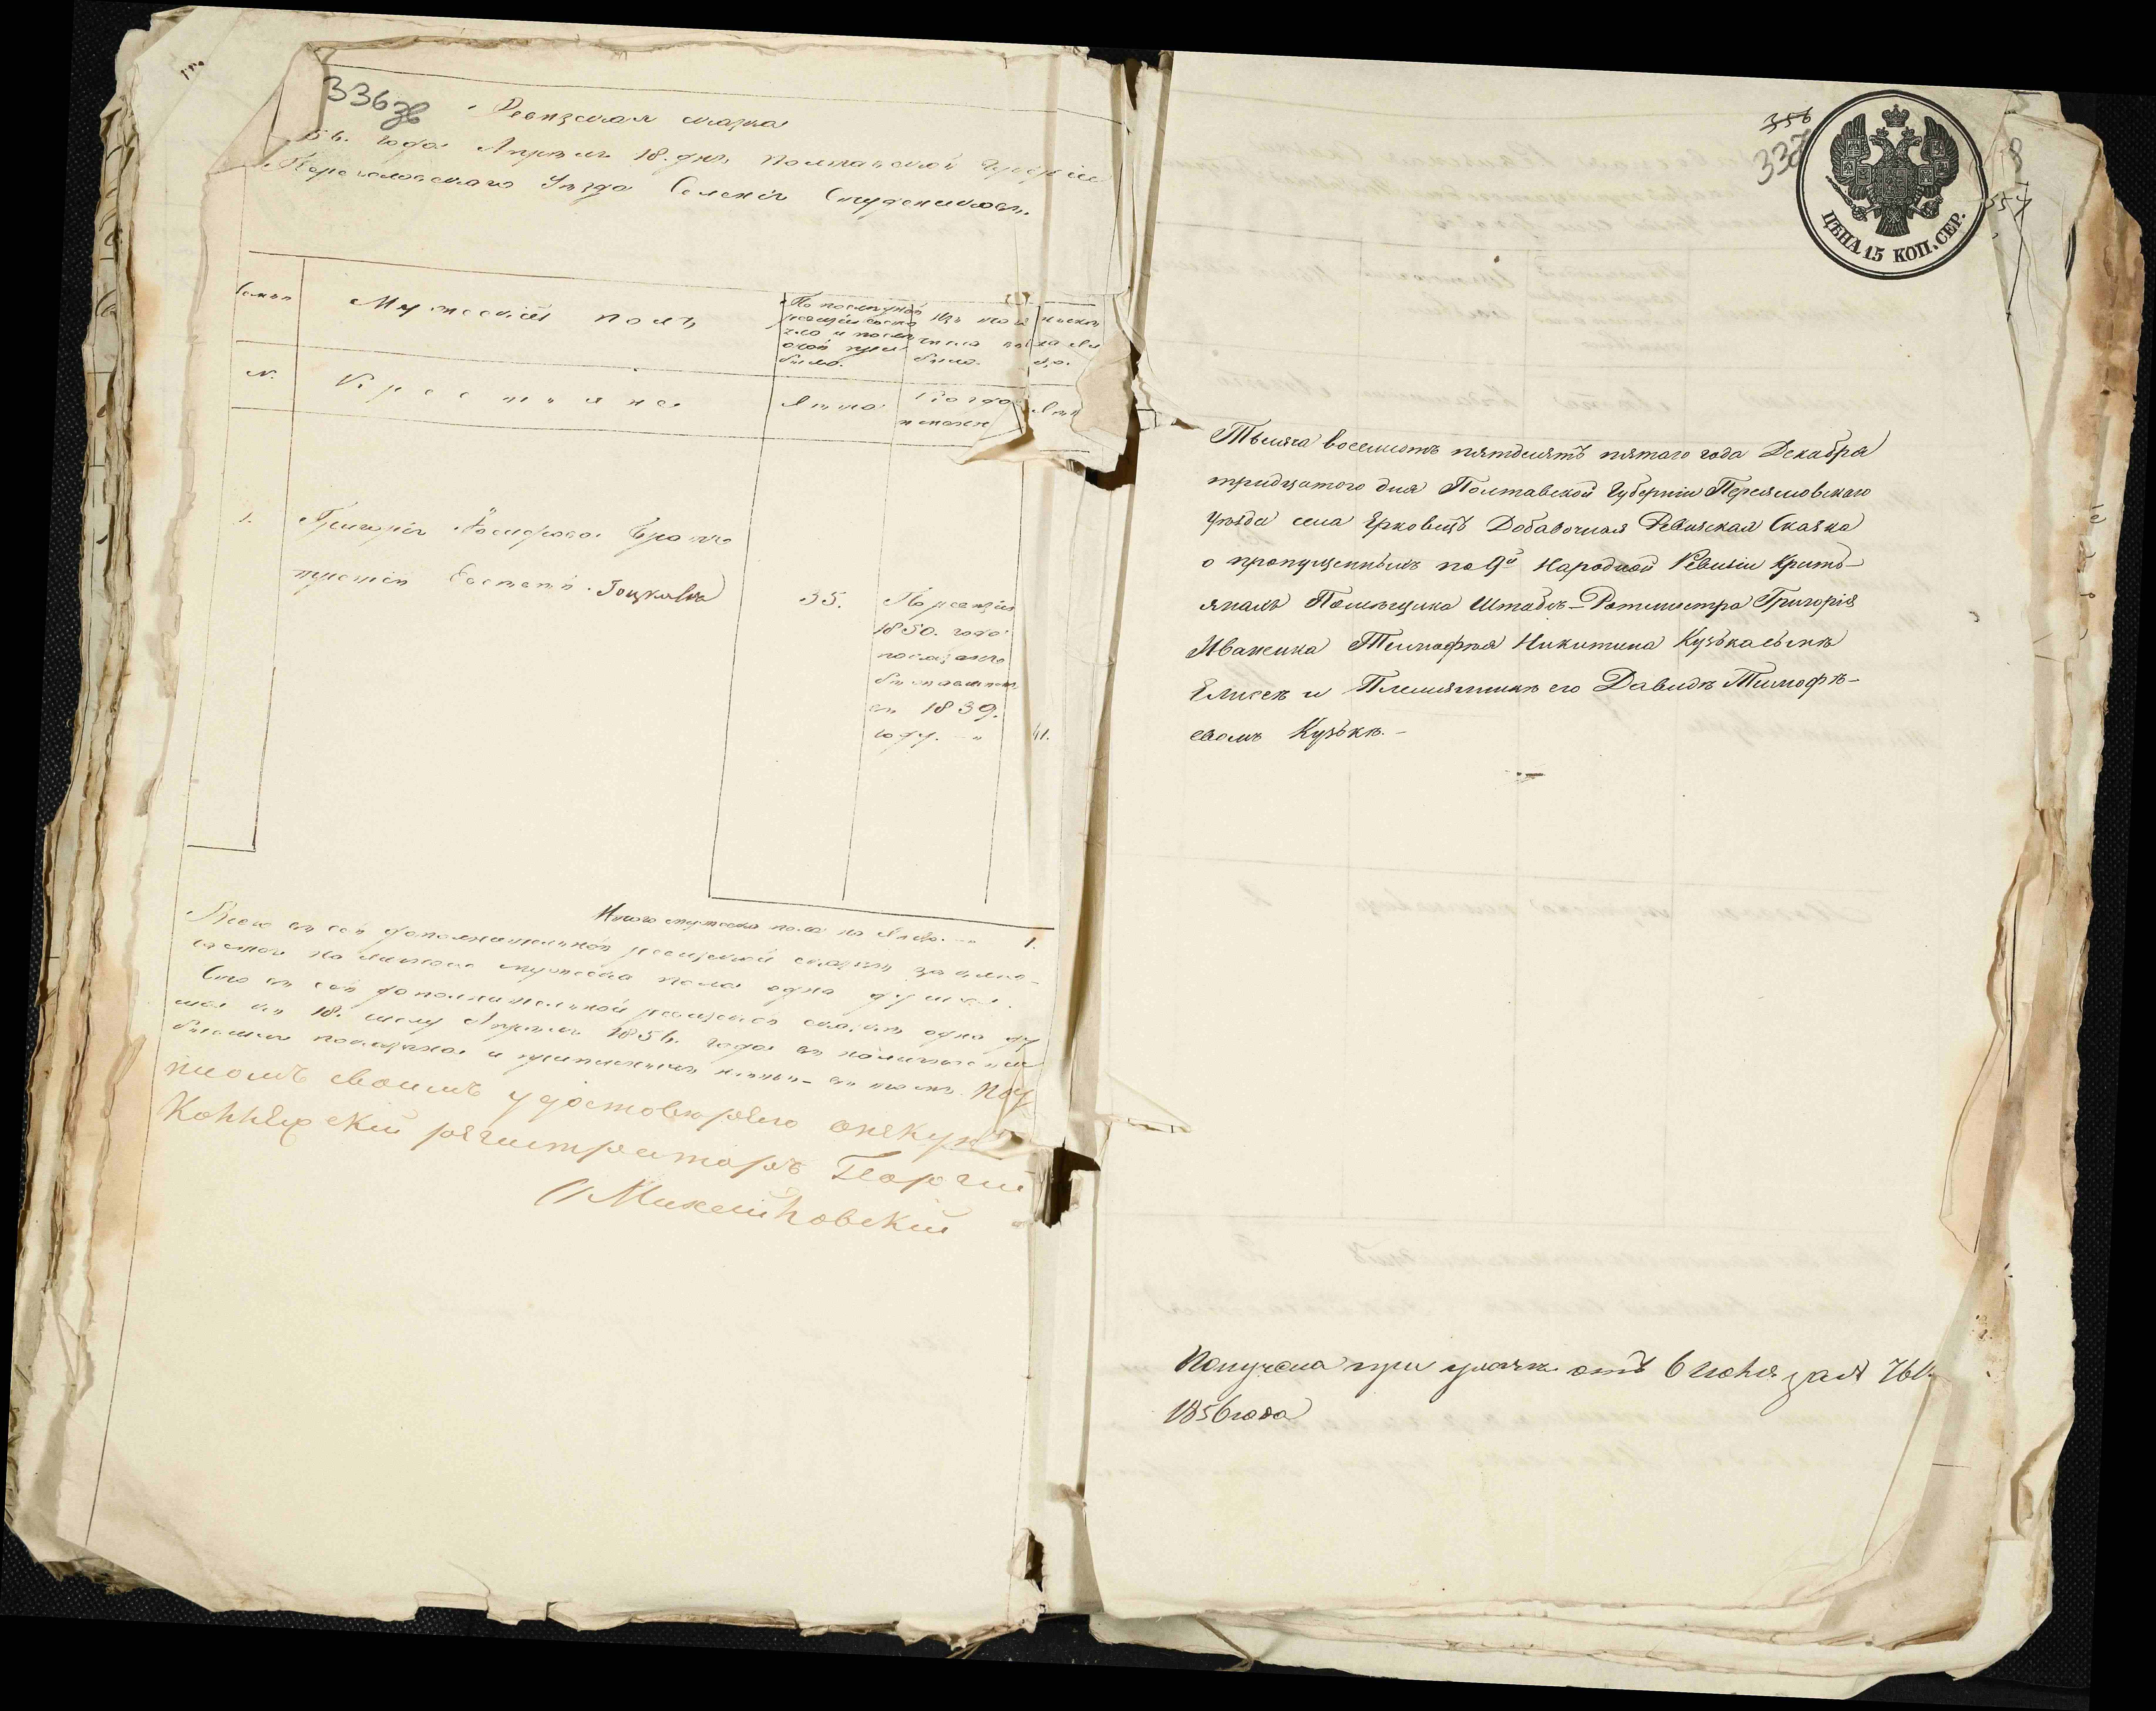 336 зв
Ревизская сказка
56. года Апреля 18. дня Полтавской Губерніи
Переяславскаго Уезда Селенія Студениковъ.
Семьи
Мужескій полъ
По последней ревизіи состояло и после оной прибыло.
Изъ того числа выбыло.
Ныне на лицо.
№.
Крестьяне
Лета
Когда именно
Лета
1.
Григорія Іосифова братъ
Евстатій Гоцкалъ
35.
По ревизіи
1850. года
показанъ
въ 1839.
году. —"
41.
Итого мужеска пола на лицо. —" 1.
Всего въ сей дополнительной ревизской сказке заключается
на лицо мужеска пола одна душа.
Что въ сей дополнительной ревизской сказке одна ду
ша къ 18. числу Апреля 1856. года въ наличности
показана и въ томъ под
писомъ своимъ удостоверяю опекунъ
Коллежскій регистраторъ Георгій
356
337
357
ЦѢНА 15 КОП. СЕР.
Тысяча восемсотъ пятдесятъ пятаго года Декабря
тридцатого дня Полтавской Губерніи Переяславскаго
Уѣзда села Ерковецъ Добавочная Ревизская Сказка
о пропущенныхъ по 9й Народной Ревизіи Крестъ-
янахъ Помѣщика Штабсъ-Ротмистра Григорія
Иваненка Тимофѣя Никитина Кузька сынѣ
Елисеѣ и Племянникѣ его Давидѣ Тимофѣ-
евомъ Кузькѣ. —
Получена при указѣ отъ 6 июня за № 761.
1856 года